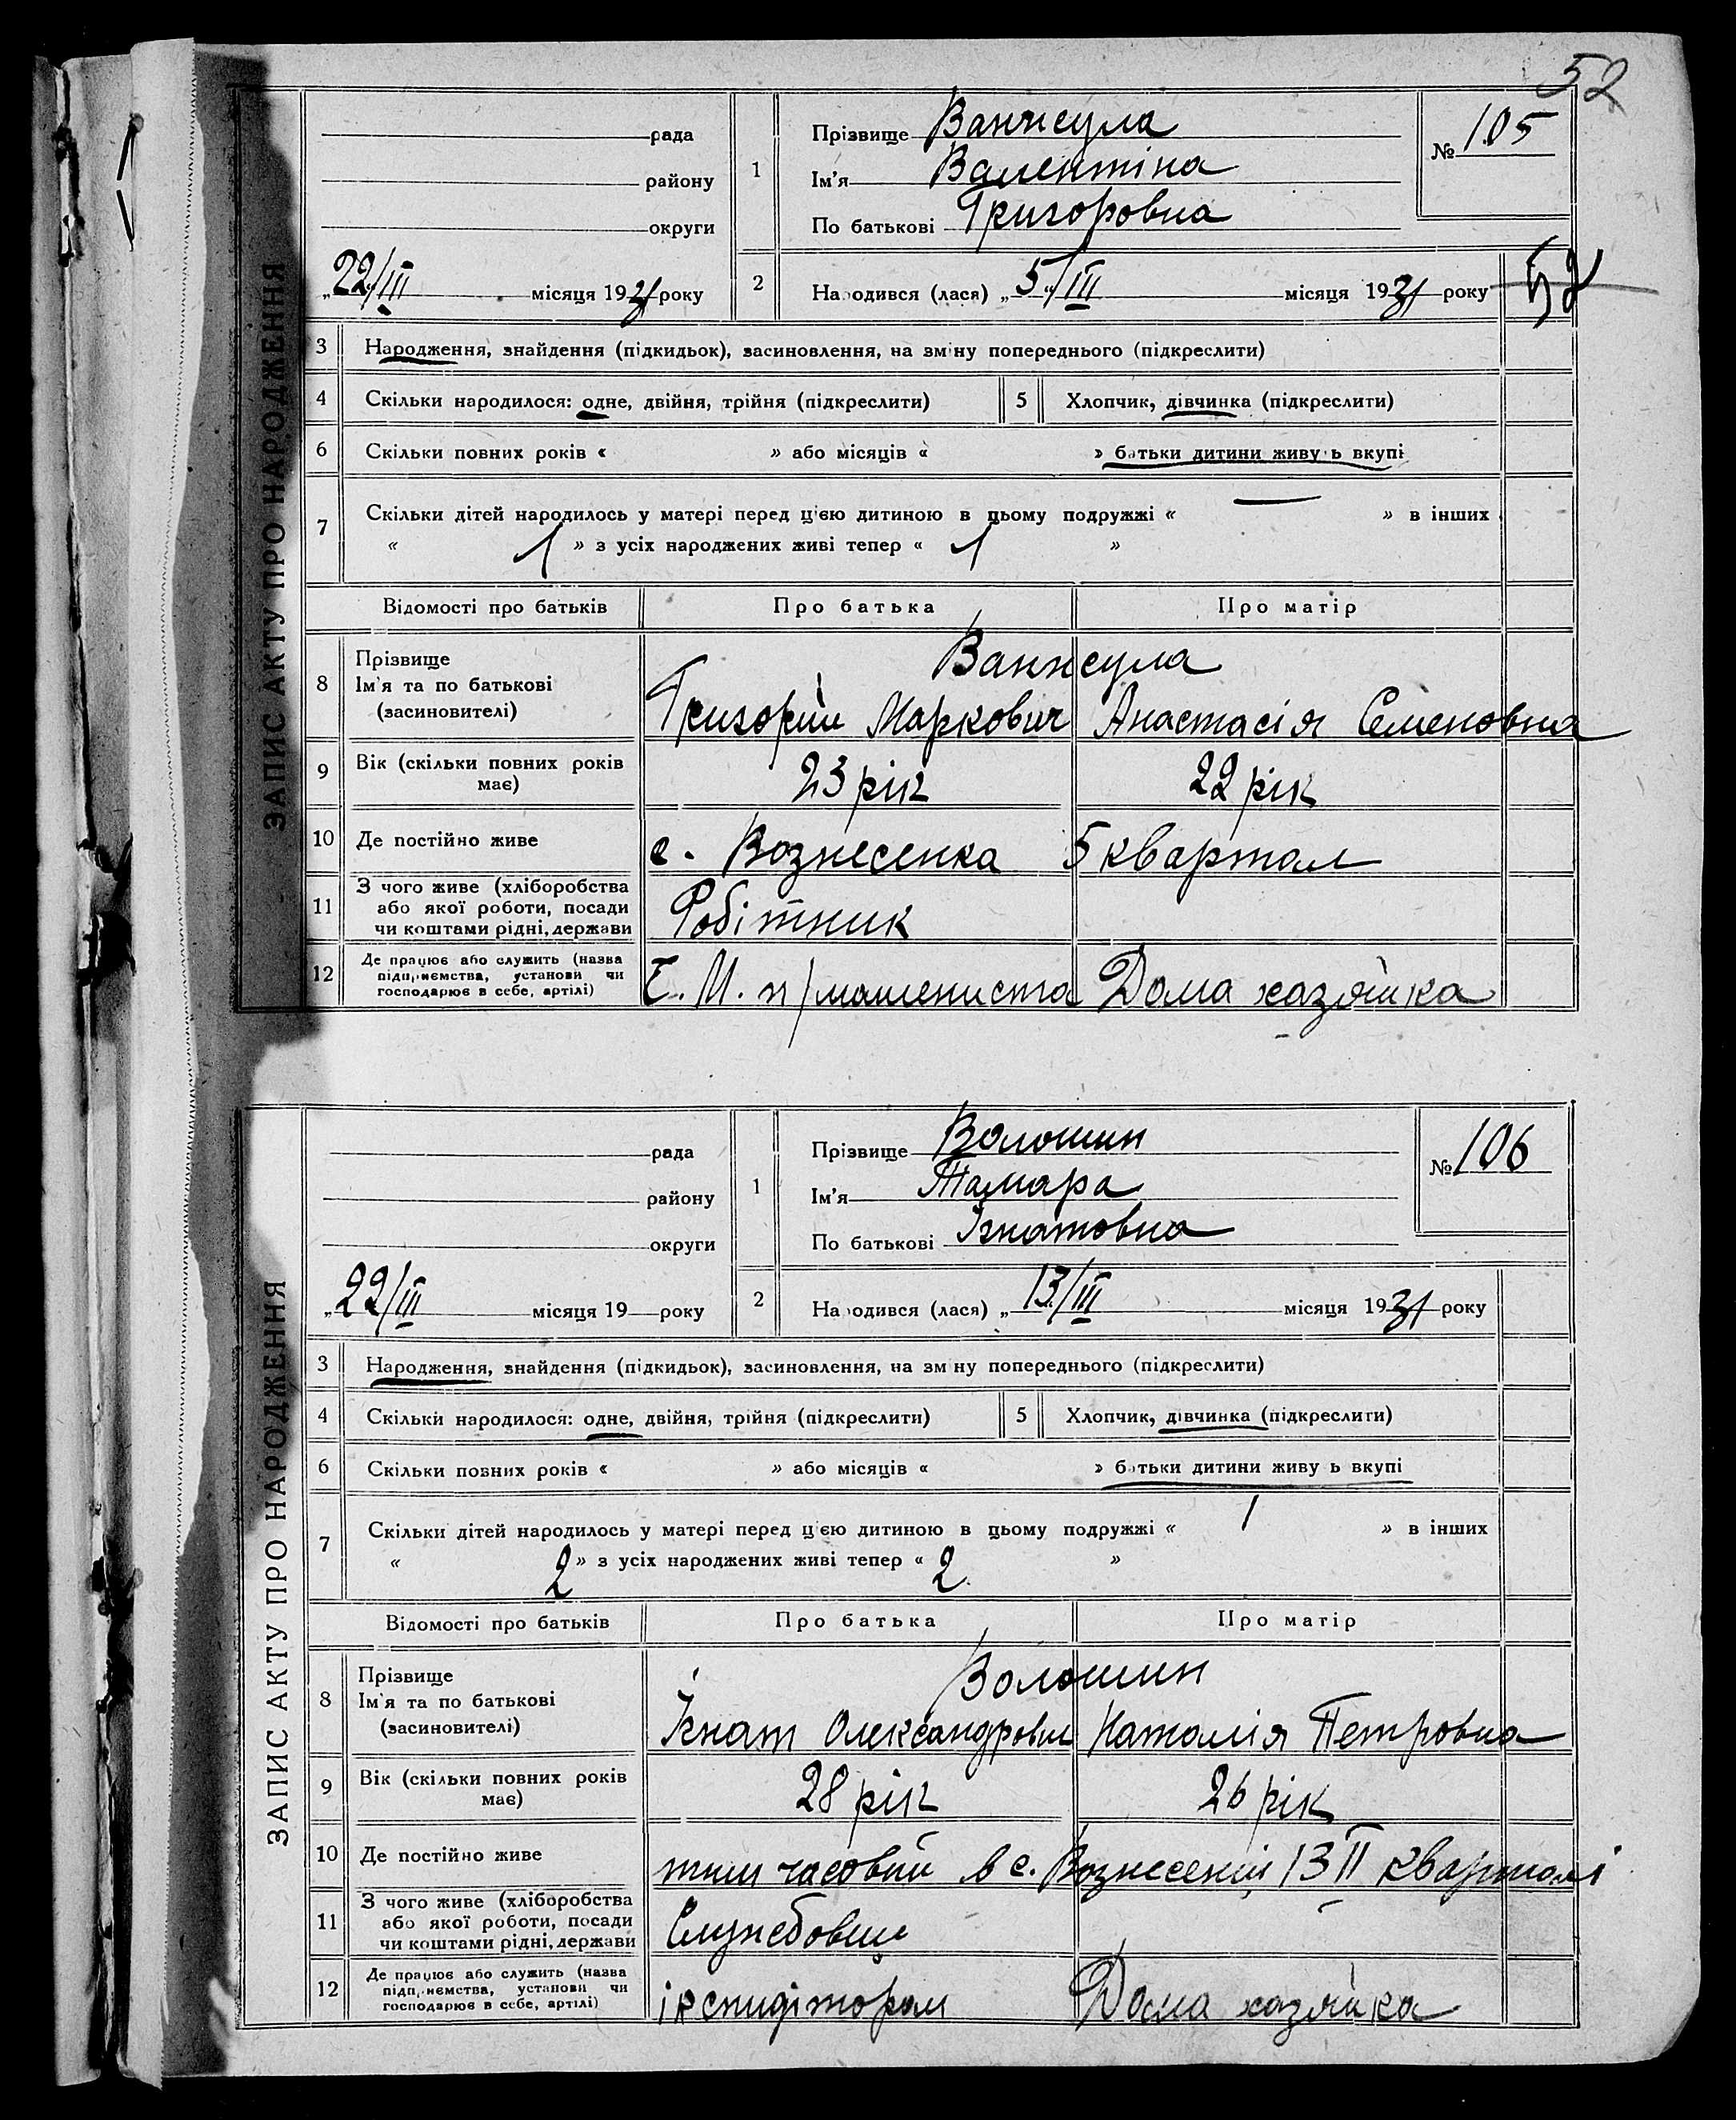 52
ЗАПИС АКТУ ПРО НАРОДЖЕННЯ
рада
району
округи
„22/III місяця 1931 року
1
Прізвище Ванжула
Ім'я Валентіна
По батькові Григоровна
№ 105
2
Народився (лася) „5/III місяця 1931 року
52
3 Народження, знайдення (підкидьок), засиновлення, на зміну попереднього (підкреслити)
4 Скільки народилося: одне, двійня, трійня (підкреслити)
5 Хлопчик, дівчинка (підкреслити)
6 Скільки повних років « » або місяців « » батьки дитини живуть вкупі
7 Скільки дітей народилось у матері перед цією дитиною в цьому подружжі « — » в інших
« 1 » з усіх народжених живі тепер « 1 »
Відомості про батьків Про батька Про матір
8 Прізвище
Ім'я та по батькові
(засиновителі)
Ванжула
Григорій Маркович Анастасія Семеновна
9 Вік (скільки повних років
має)
23 рік 22 рік
10 Де постійно живе с. Вознесенка 5 квартал
11 З чого живе (хліборобства
або якої роботи, посади
чи коштами рідні, держави
Робітник
12 Де працює або служить (назва
підприємства, установи чи
господарює в себе, артілі)
п/машениста Дома хазяйка
ЗАПИС АКТУ ПРО НАРОДЖЕННЯ
рада
району
округи
„22/III місяця 19 року
1
Прізвище Волошин
Ім'я Тамара
По батькові Ігнатовна
№ 106
2
Народився (лася) „13/III місяця 1931 року
3 Народження, знайдення (підкидьок), засиновлення, на зміну попереднього (підкреслити)
4 Скільки народилося: одне, двійня, трійня (підкреслити)
5 Хлопчик, дівчинка (підкреслити)
6 Скільки повних років « » або місяців « » батьки дитини живуть вкупі
7 Скільки дітей народилось у матері перед цією дитиною в цьому подружжі « 1 » в інших
« 2 » з усіх народжених живі тепер « 2 »
Відомості про батьків Про батька Про матір
8 Прізвище
Ім'я та по батькові
(засиновителі)
Волошин
Ігнат Олександрович Наталія Петровна
9 Вік (скільки повних років
має)
28 рік 26 рік
10 Де постійно живе тимчасовий в с. Вознесенці 13 II кварталі
11 З чого живе (хліборобства
або якої роботи, посади
чи коштами рідні, держави
Службовец
12 Де працює або служить (назва
підприємства, установи чи
господарює в себе, артілі)
ікспидітором Дома хазяйка